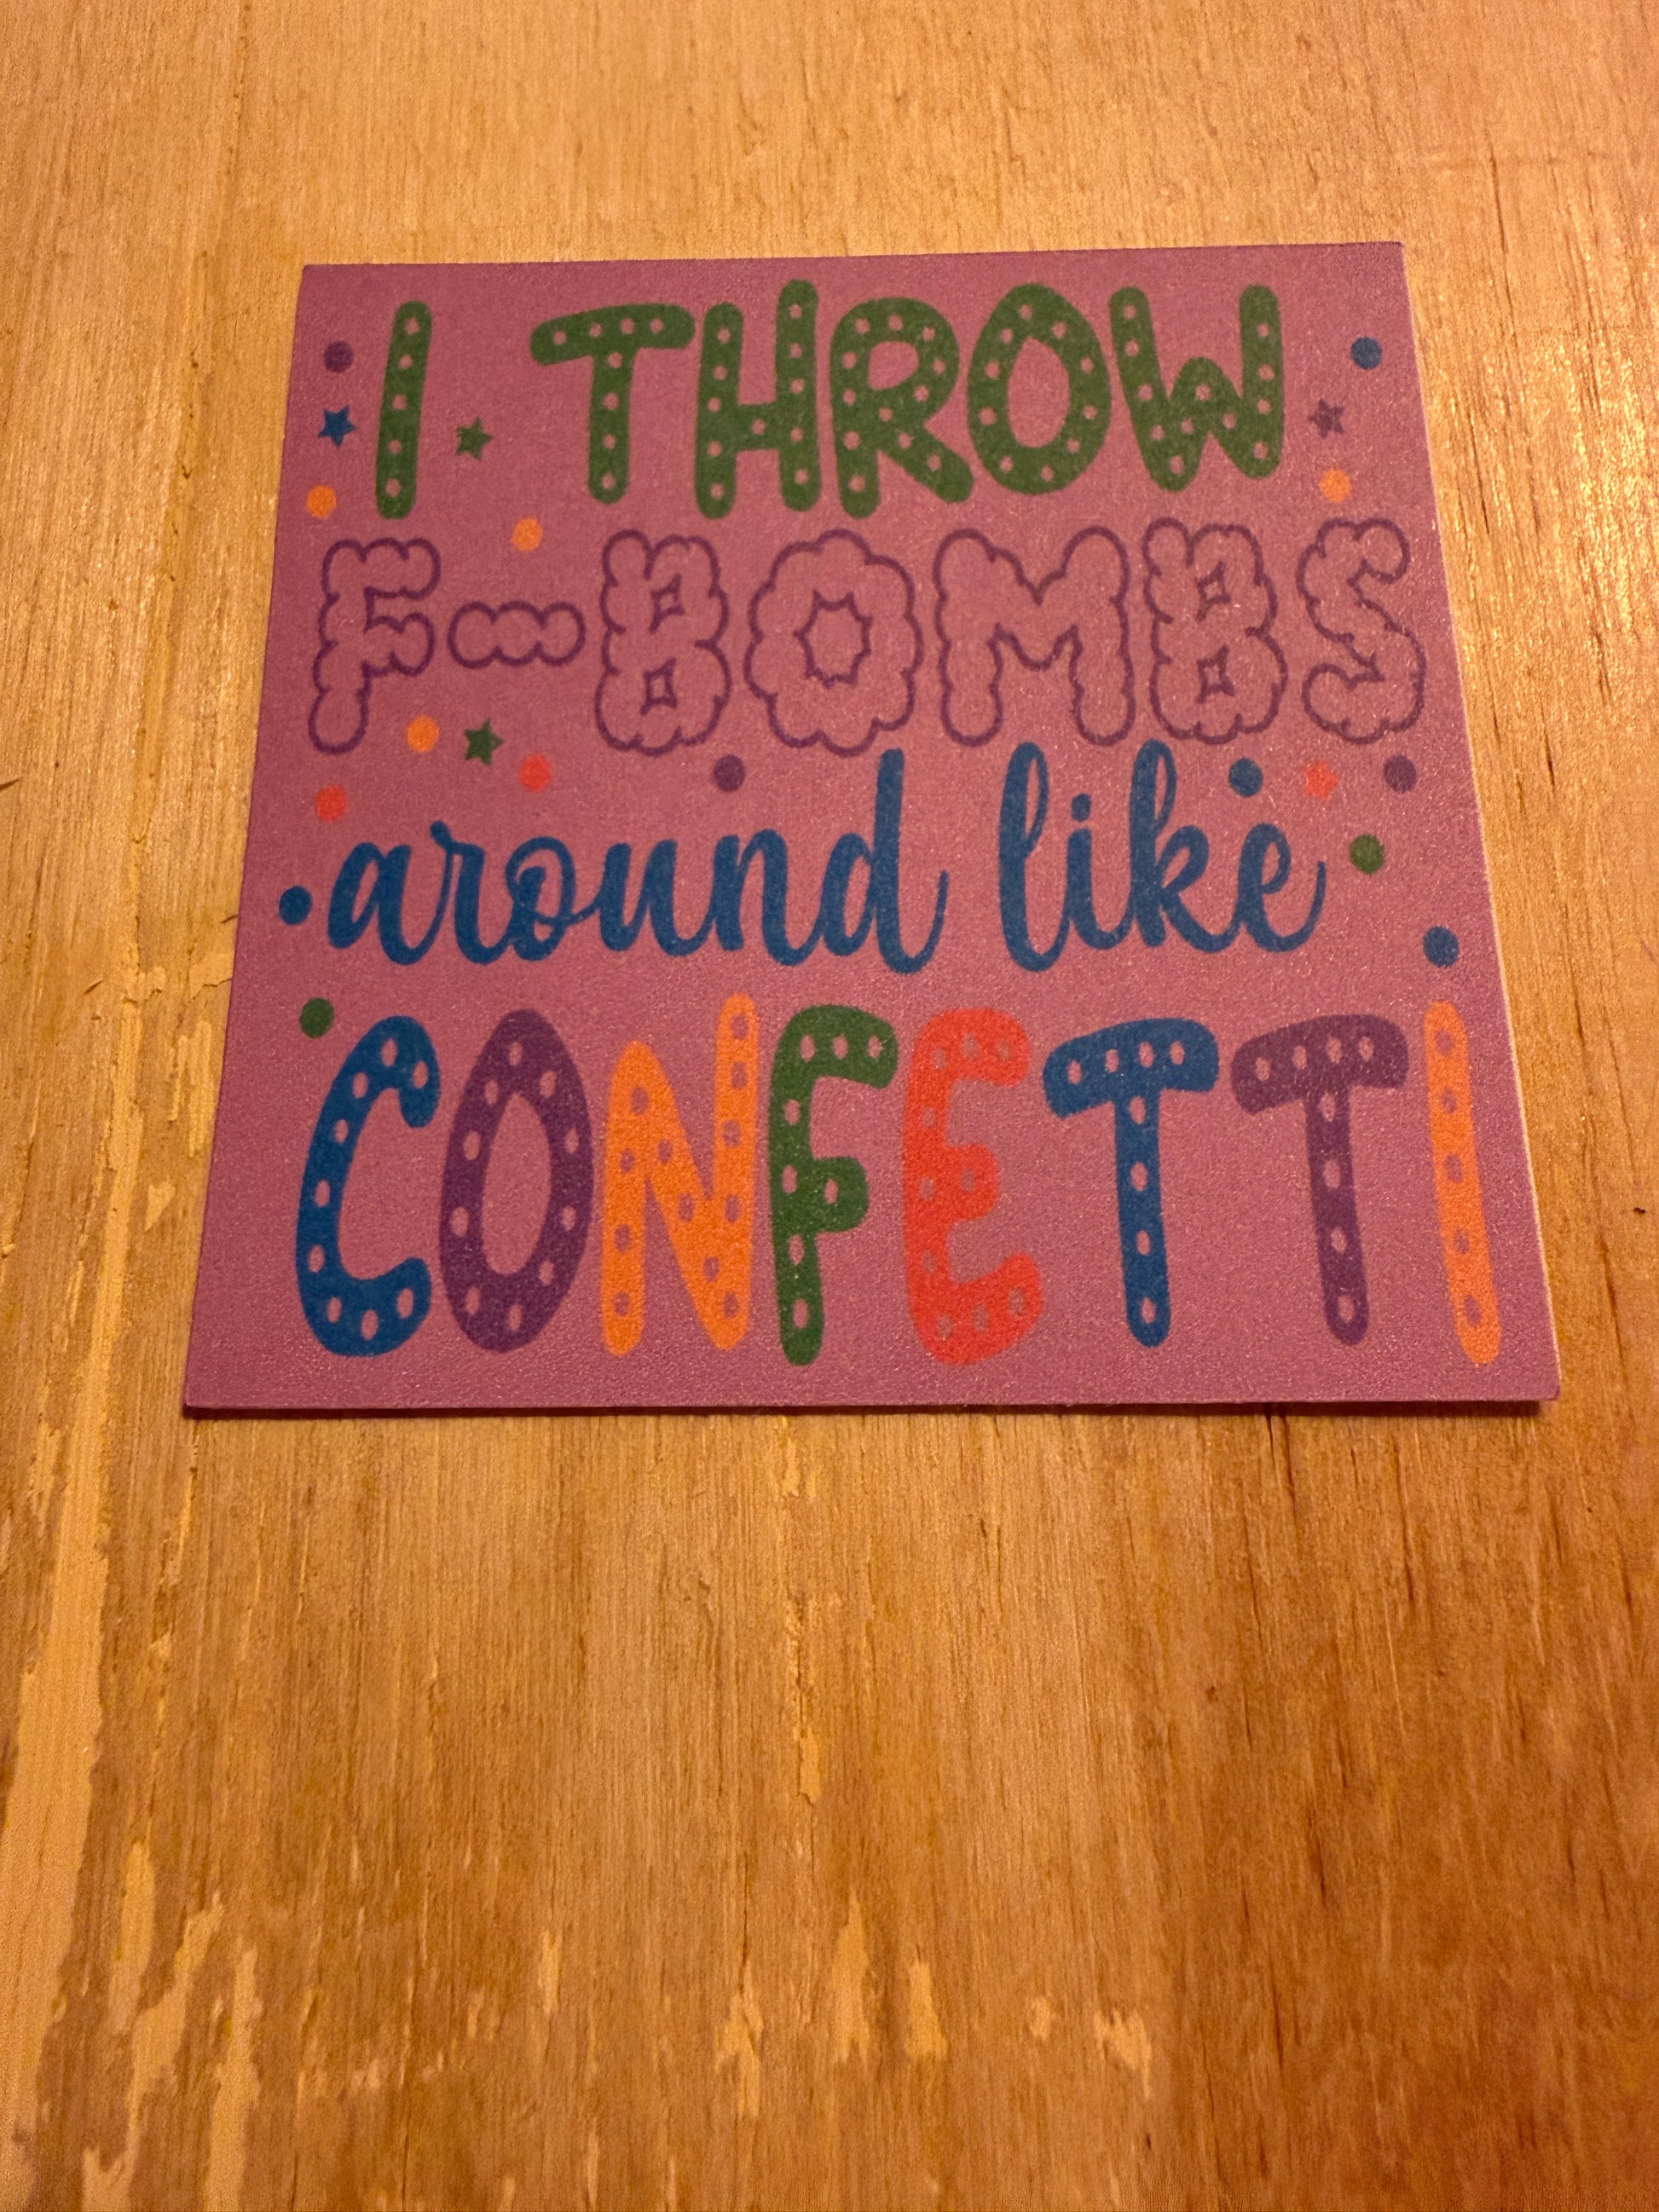 I THROW
F-BOMBS
around like
CONFETTI